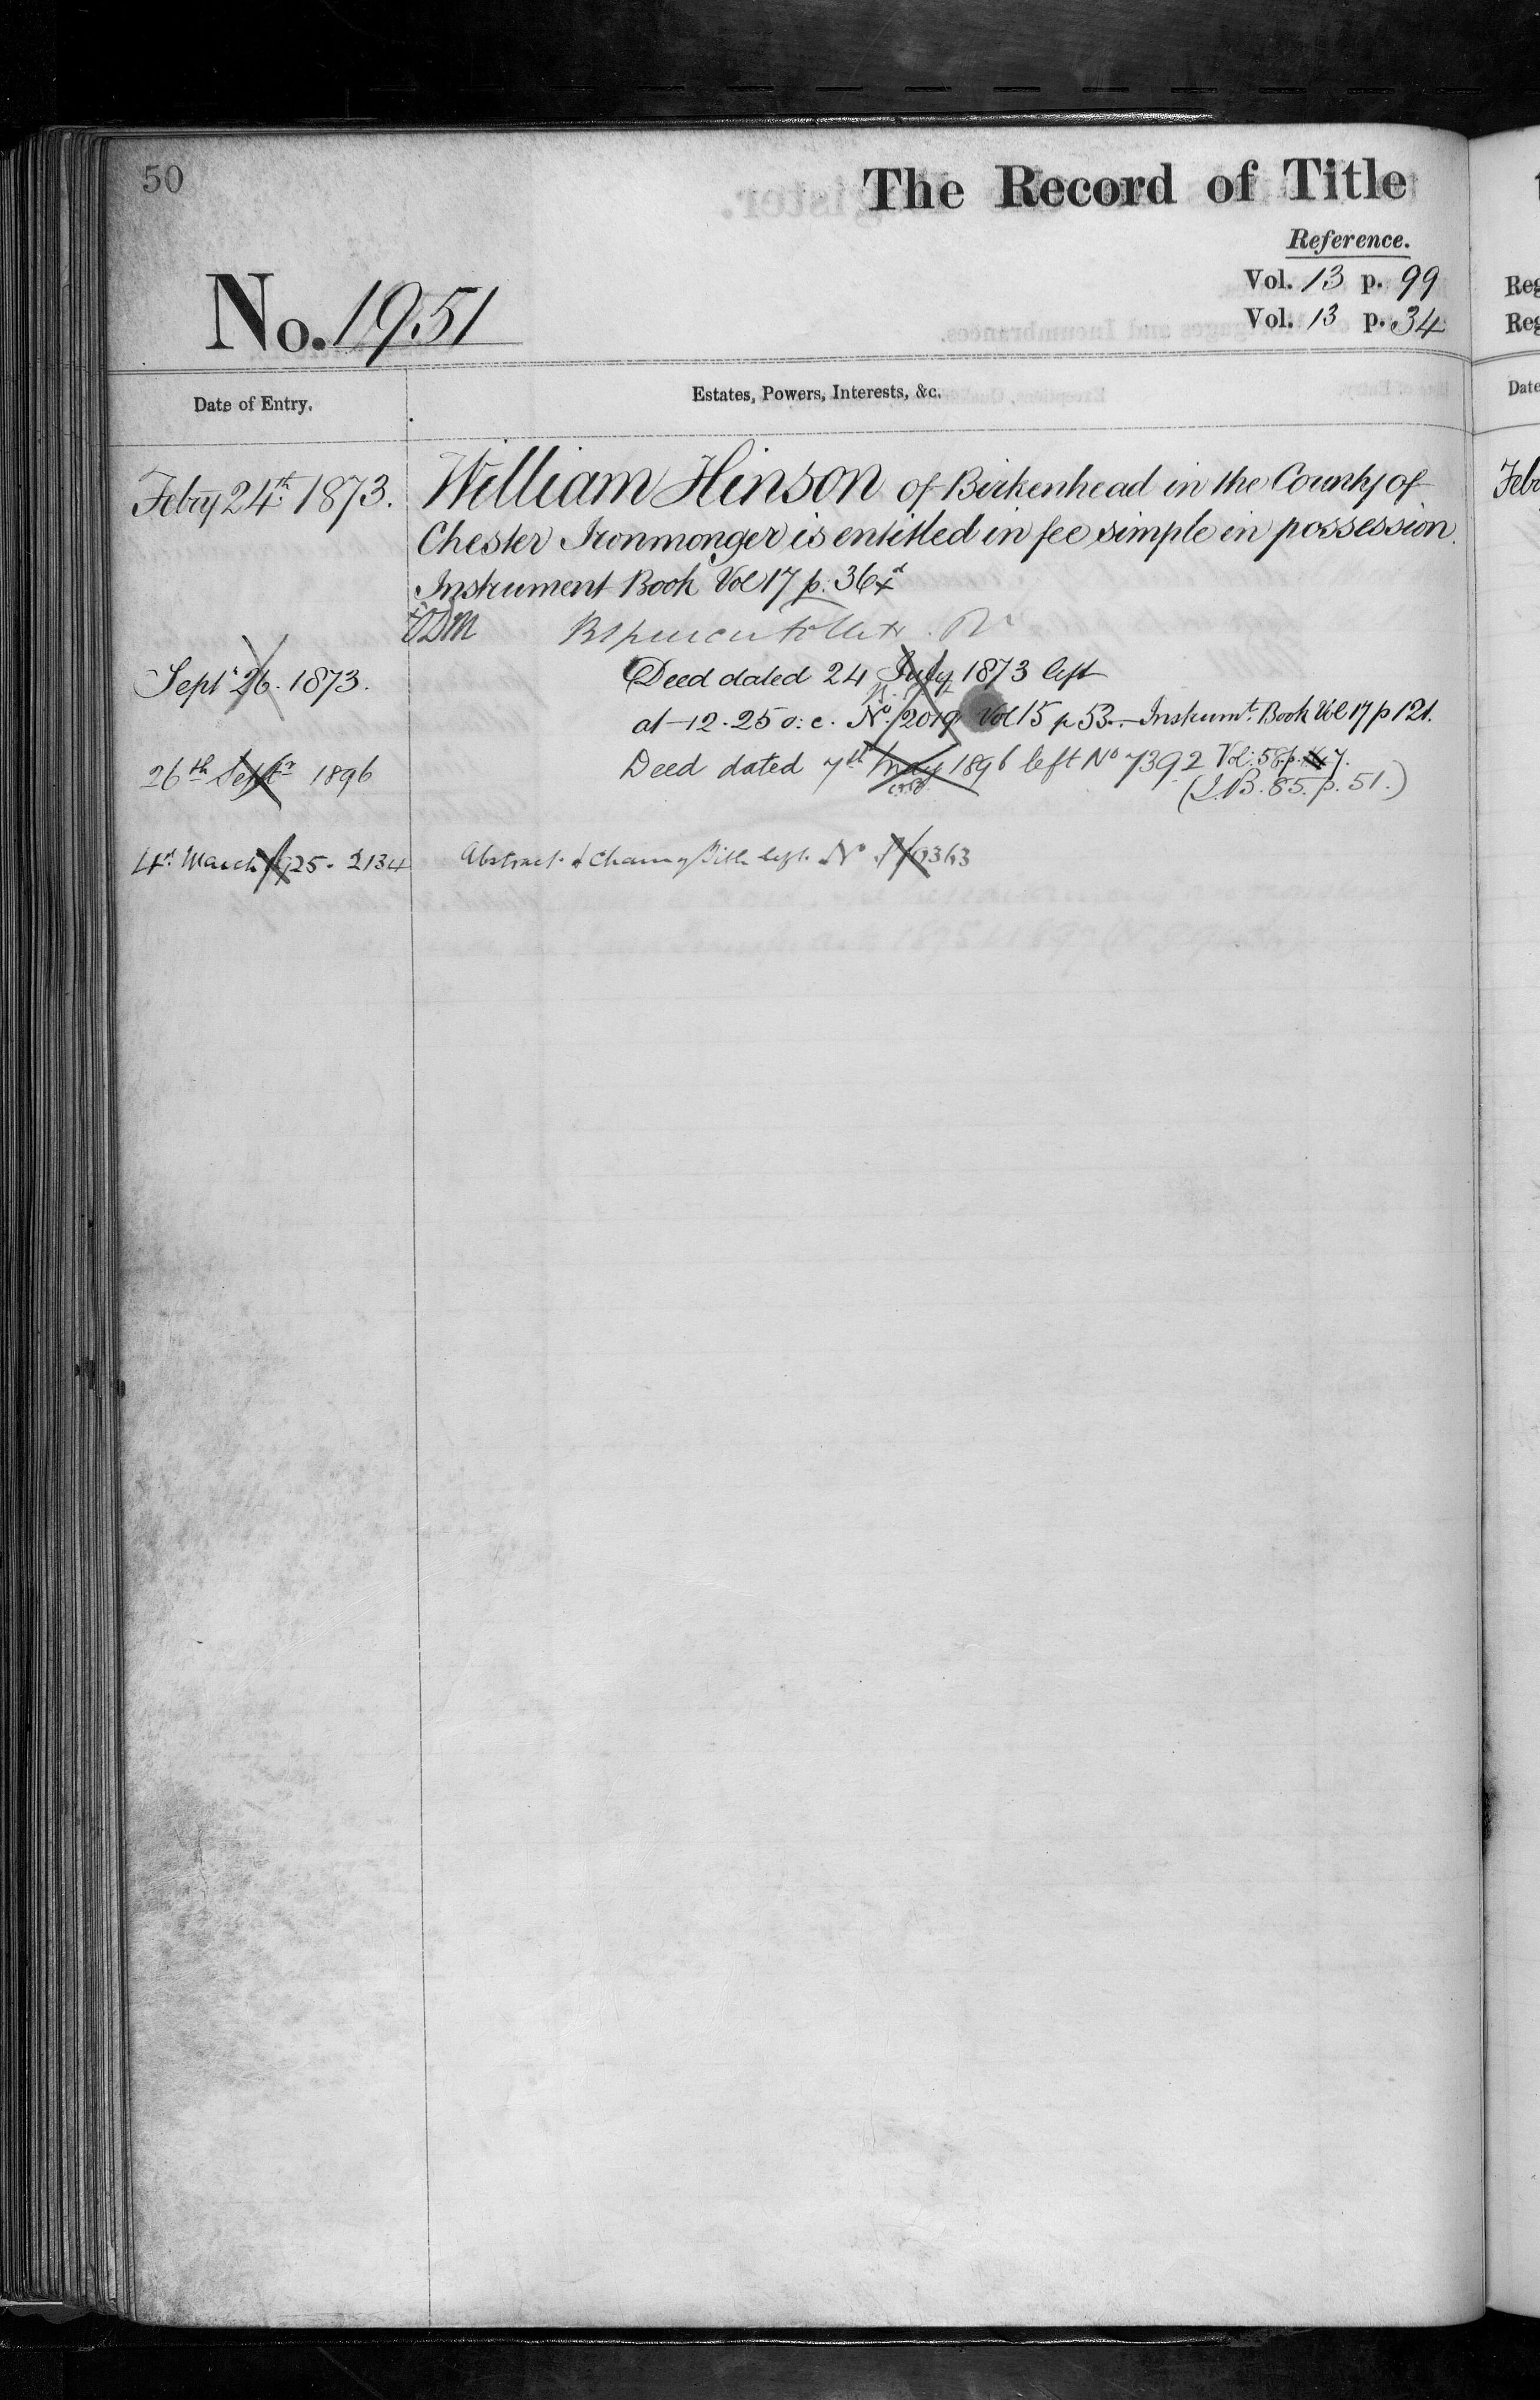 50
The Record of Title
Reference.
Vol. 13 p. 99
Vol. 13 p. 34
No. 1951
Date of Entry.
Estates, Powers, Interests, &c.
Febry 24th 1873.
William Hinson of Birkenhead in the County of
Chester Ironmonger is entitled in fee simple in possession.
Instrument Book Vol 17 p. 36
Sept 26. 1873.
Deed dated 24 July 1873 left
at 12.25 o:c. No. 2019 Vol 15 p 53. Instrumt. Book Vol 17 p 121.
26th Septr 1896
Deed dated 7th May 1896 left No 7392 Vol: 58 p. 47.
(I.B. 85. p. 51.)
March 1925. 2134
Abstract & Chain of Title left. No
Reg
Reg
Date
Feb